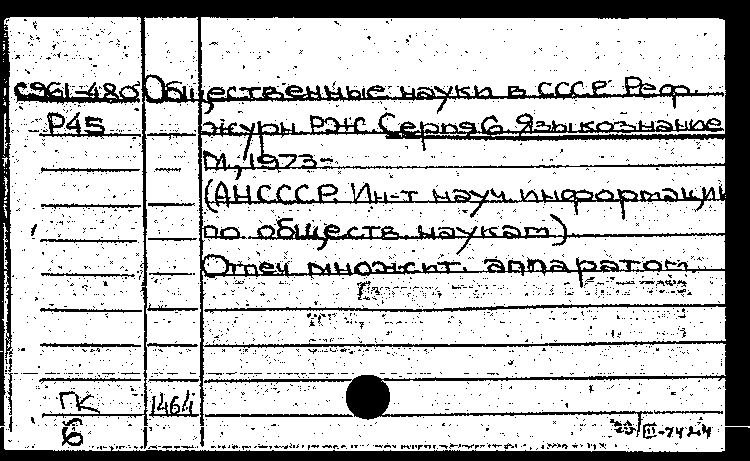 С961-480 Общественные науки в СССР. Реф.
Р45 журн. РЖ. Серия 6. Языкознание
М., 1973-
(АН СССР. Ин-т науч. информации
по обществ. наукам)
Отпеч. множит. аппаратом.
ПК 1464
6